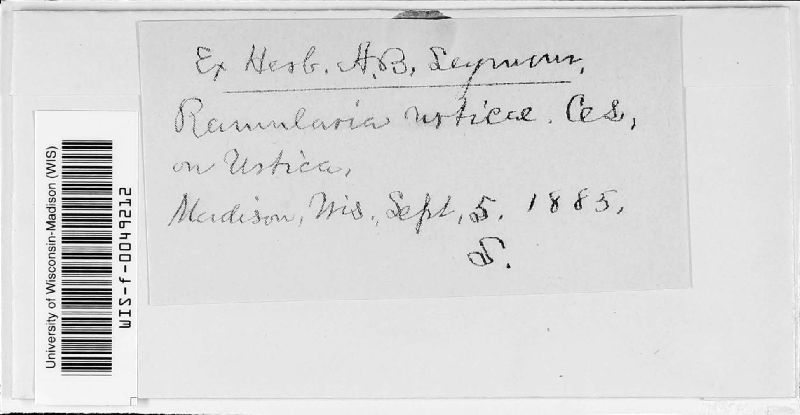 Ex Herb. A.B. Seymour.
Ramularia urticae. Ces,
on Urtica,
Madison, Wis., Sept, 5. 1885,
S.
University of Wisconsin-Madison (WIS)
WIS-f-0049212